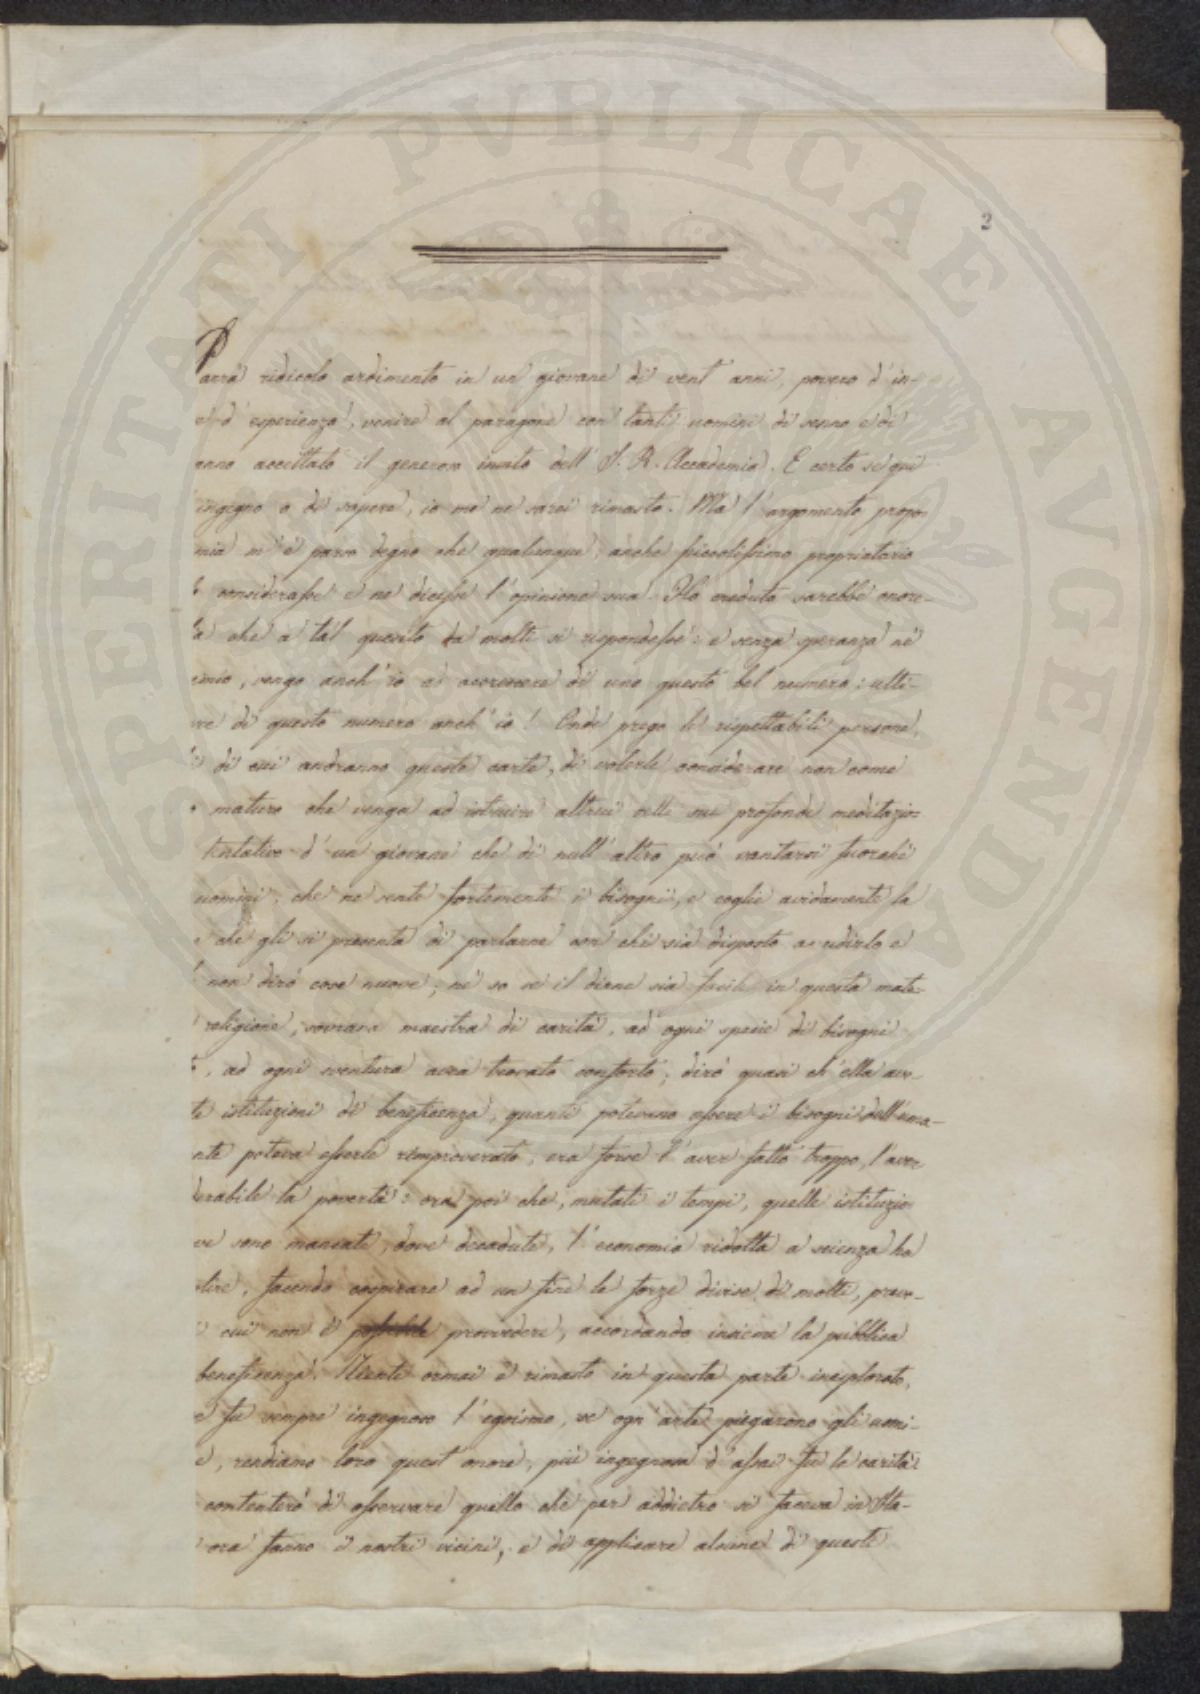 PROSPERITATI PVBLICAE AVGENDAE
2
Parrà ridicolo ardimento in un giovane di vent' anni, povero d'in-
e d' esperienza, venire al paragone con tanti uomini di senno e di
anno accettato il generoso invito dell' I. R. Accademia. E certo se qui
ingegno o di sapere, io me ne sarei rimasto. Ma l' argomento propo-
mia m' è parso degno che qualunque, anche piccolissimo proprietario
considerasse e ne dicesse l' opinione sua. Ho creduto sarebbe onore-
che a tal quesito da molti si rispondesse: e senza speranza nè
emio, vengo anch' io ad accrescere di uno questo bel numero: ulti-
re di questo numero anch' io! Onde prego le rispettabili persone,
di cui andranno queste carte, di volerle considerare non come
maturo che venga ad istruire altrui delle sue profonde meditazio-
tentativo d' un giovane che di null' altro può vantarsi fuorchè
uomini, che ne sente fortemente i bisogni, e coglie avidamente la
che gli si presenta di parlarne con chi sia disposto a udirlo e
non dirò cose nuove; nè so se il dirne sia facile in questa mate-
religione, sovrana maestra di carità, ad ogni specie di bisogni
, ad ogni sventura avea trovato conforto; dirò quasi ch' ella ave-
ti istituzioni di beneficenza, quanti potevano essere i bisogni dell' uma-
nte poteva esserle rimproverato, era forse l' aver fatto troppo, l' aver
derabile la povertà: ora poi che, mutati i tempi, quelle istituzio-
ve sono mancate, dove decadute, l' economia ridotta a scienza ha
plire, facendo cospirare ad un fine le forze divise di molti, prov-
cui non è possibile provvedere, accordando insieme la pubblica
beneficenza. Niente ormai è rimasto in questa parte inesplorato,
e fu sempre ingegnoso l' egoismo, se ogn' arte piegarono gli uomi-
e, rendiamo loro quest' onore, più ingegnosa d' assai fu la carità:
contenterò di osservare quello che per addietro si faceva in Ita-
ora fanno i nostri vicini, e di applicare alcune di queste